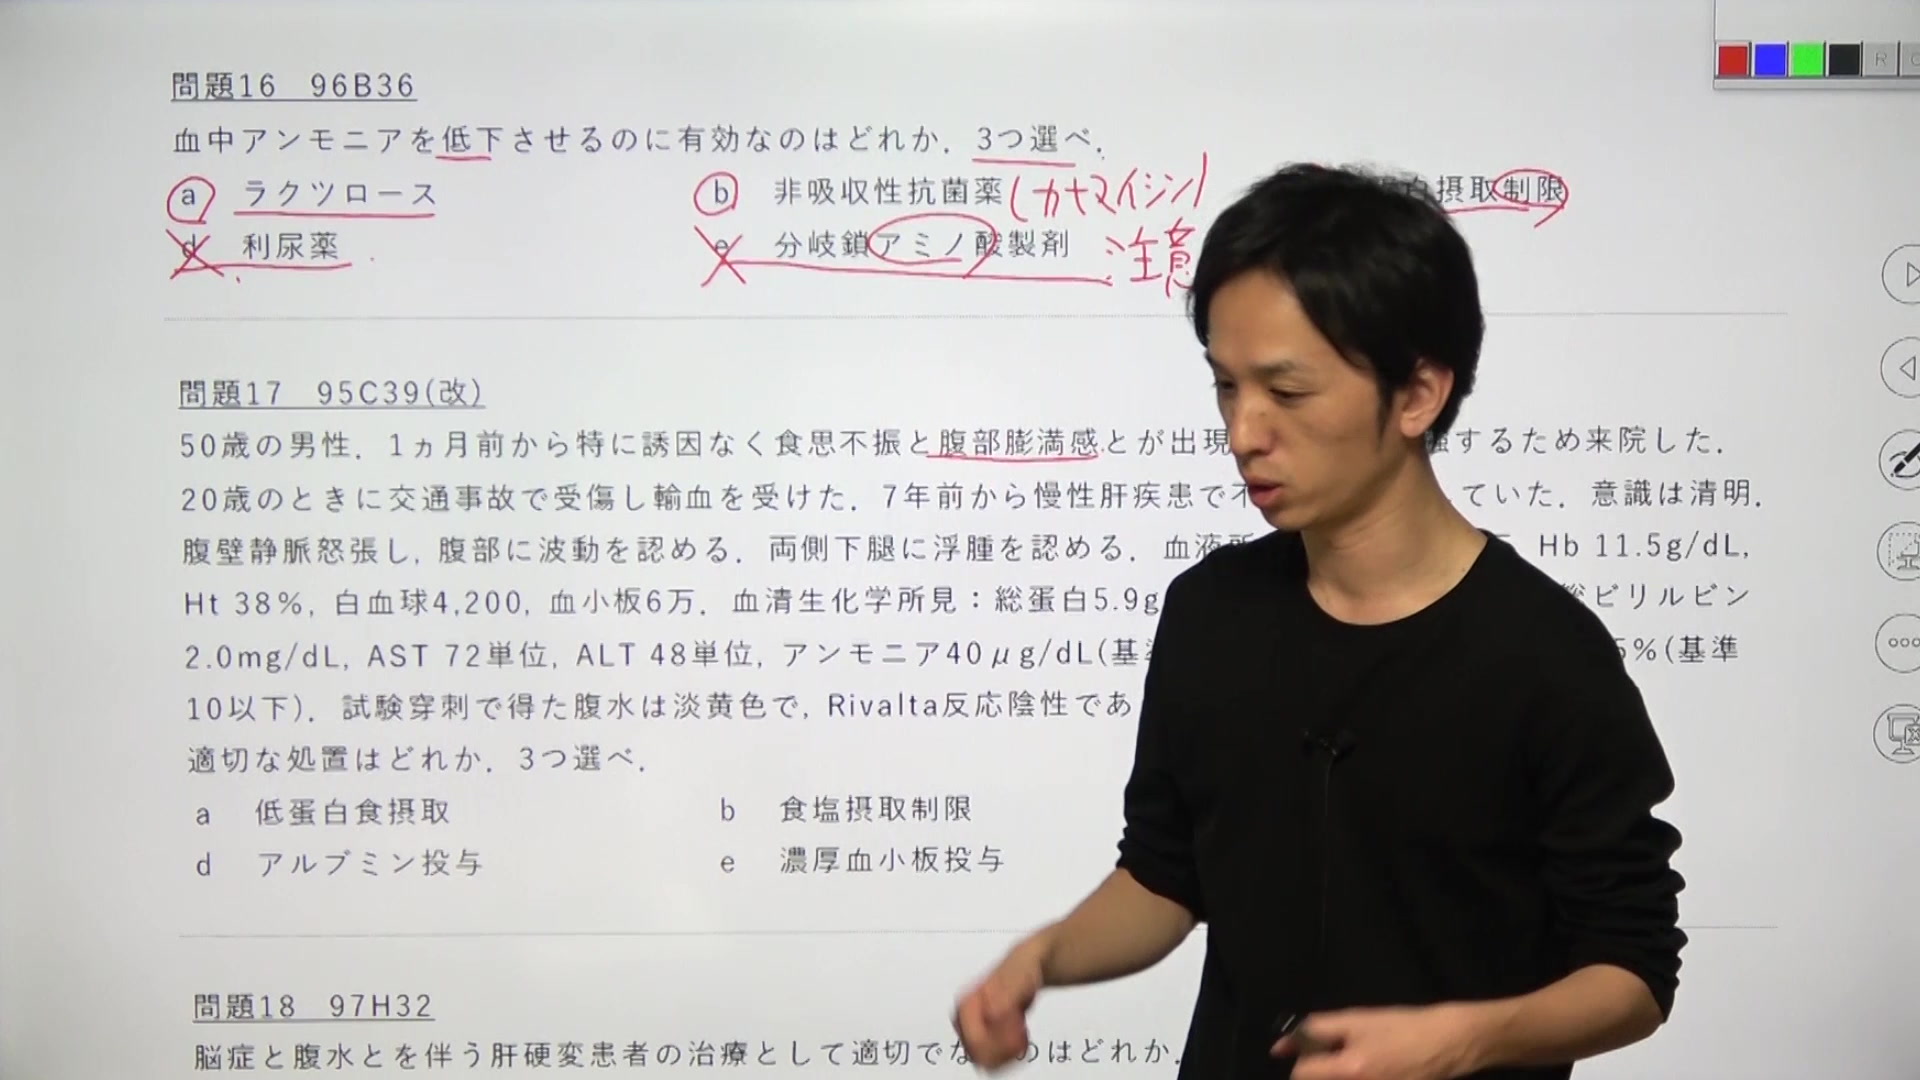 問題16 96B36
血中アンモニアを低下させるのに有効なのはどれか．3つ選べ．
a ラクツロース b 非吸収性抗菌薬(カナマイシン) 蛋白摂取制限
d 利尿薬 e 分岐鎖アミノ酸製剤 : 注意
問題17 95C39(改)
50歳の男性．1ヵ月前から特に誘因なく食思不振と腹部膨満感とが出現 するため来院した．
20歳のときに交通事故で受傷し輸血を受けた．7年前から慢性肝疾患で不 していた．意識は清明．
腹壁静脈怒張し, 腹部に波動を認める．両側下腿に浮腫を認める．血液所 Hb 11.5g/dL,
Ht 38%, 白血球4,200, 血小板6万．血清生化学所見：総蛋白5.9g 総ビリルビン
2.0mg/dL, AST 72単位, ALT 48単位, アンモニア40μg/dL(基準 5%(基準
10以下)．試験穿刺で得た腹水は淡黄色で, Rivalta反応陰性であ
適切な処置はどれか．3つ選べ．
a 低蛋白食摂取 b 食塩摂取制限
d アルブミン投与 e 濃厚血小板投与
問題18 97H32
脳症と腹水とを伴う肝硬変患者の治療として適切でな のはどれか．
R